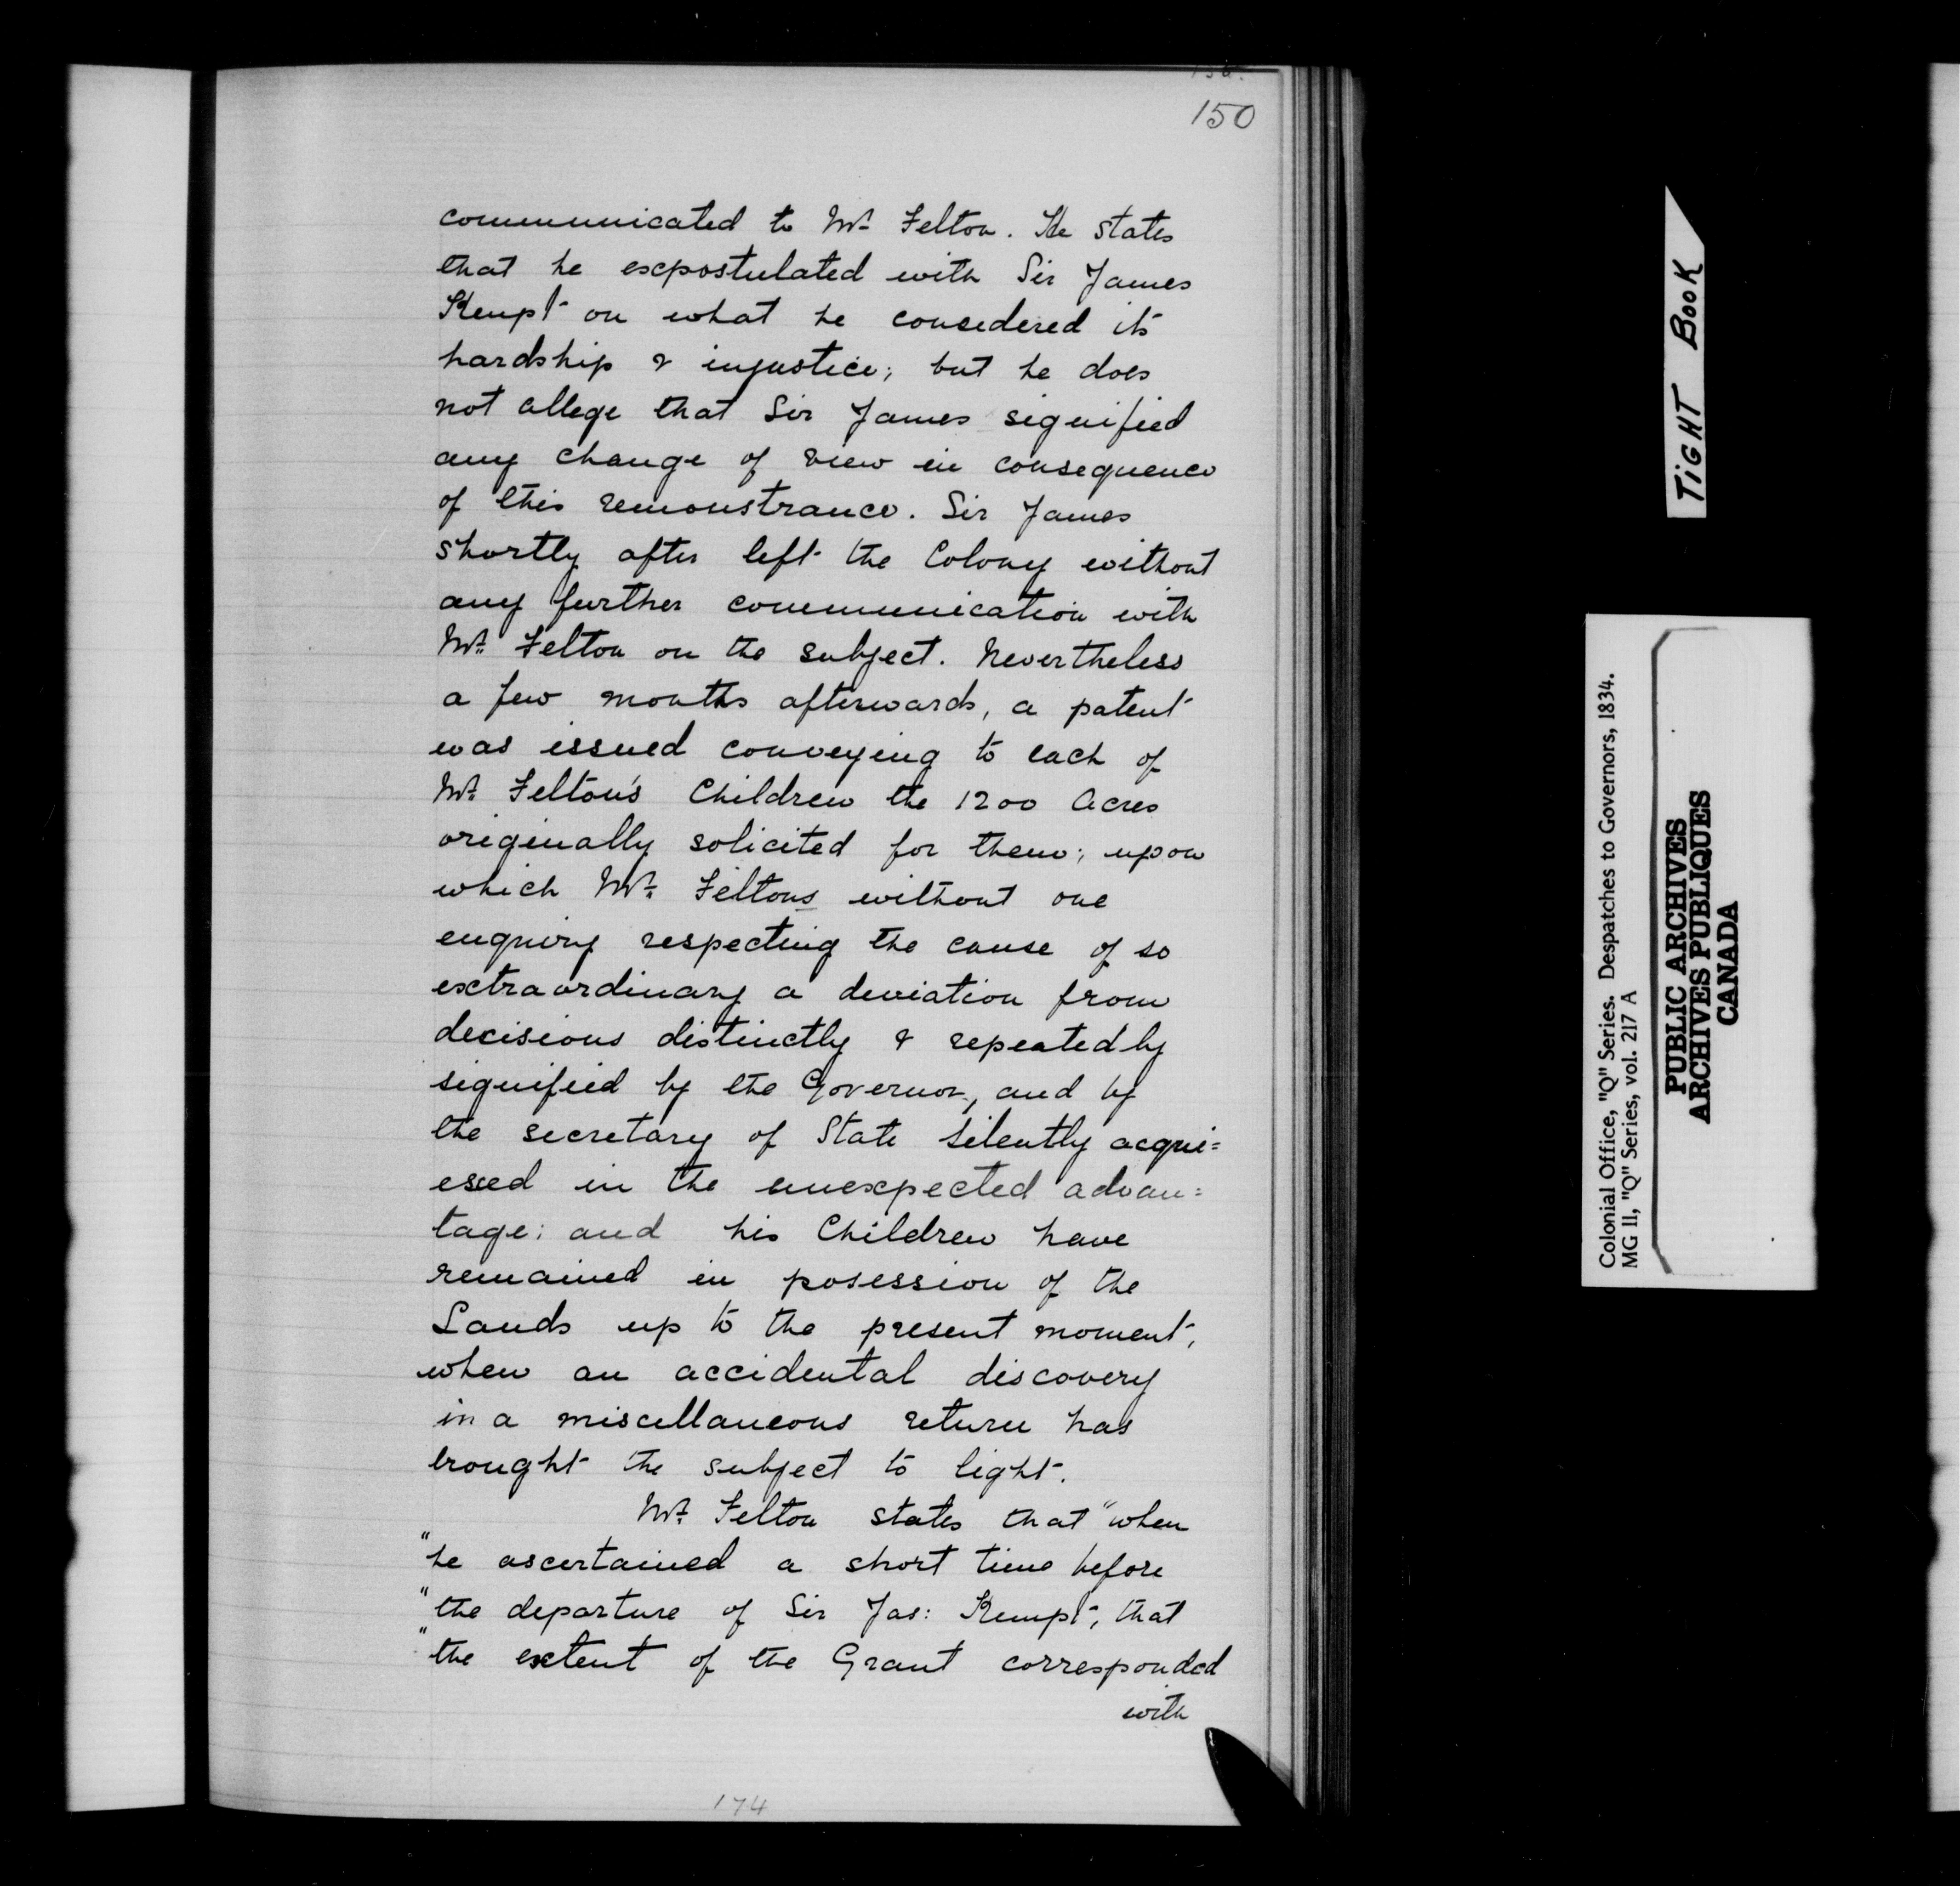 150
communicated to Mr. Felton. He states
that he expostulated with Sir James
Kempt on what he considered its
hardship & injustice; but he does
not allege that Sir James signified
any change of view in consequence
of this remonstrance. Sir James
shortly after left the Colony without
any further communication with
Mr. Felton on the subject. Nevertheless
a few months afterwards, a patent
was issued conveying to each of
Mr. Felton's Children the 1200 Acres
originally solicited for them; upon
which Mr. Feltons without one
enquiry respecting the cause of so
extraordinary a deviation from
decisions distinctly & repeatedly
signified by the Governor, and by
the secretary of State silently acqui=
esed in the unexpected advan=
tage; and his Children have
remained in posession of the
Lands up to the present moment,
when an accidental discovery
in a miscellaneous return has
brought the subject to light.
Mr. Felton states that "when
"he ascertained a short time before
"the departure of Sir Jas: Kempt, that
"the extent of the Grant corresponded
with
174
TIGHT BOOK
Colonial Office, "Q" Series. Despatches to Governors, 1834.
MG 11, "Q" Series, vol. 217 A
PUBLIC ARCHIVES
ARCHIVES PUBLIQUES
CANADA